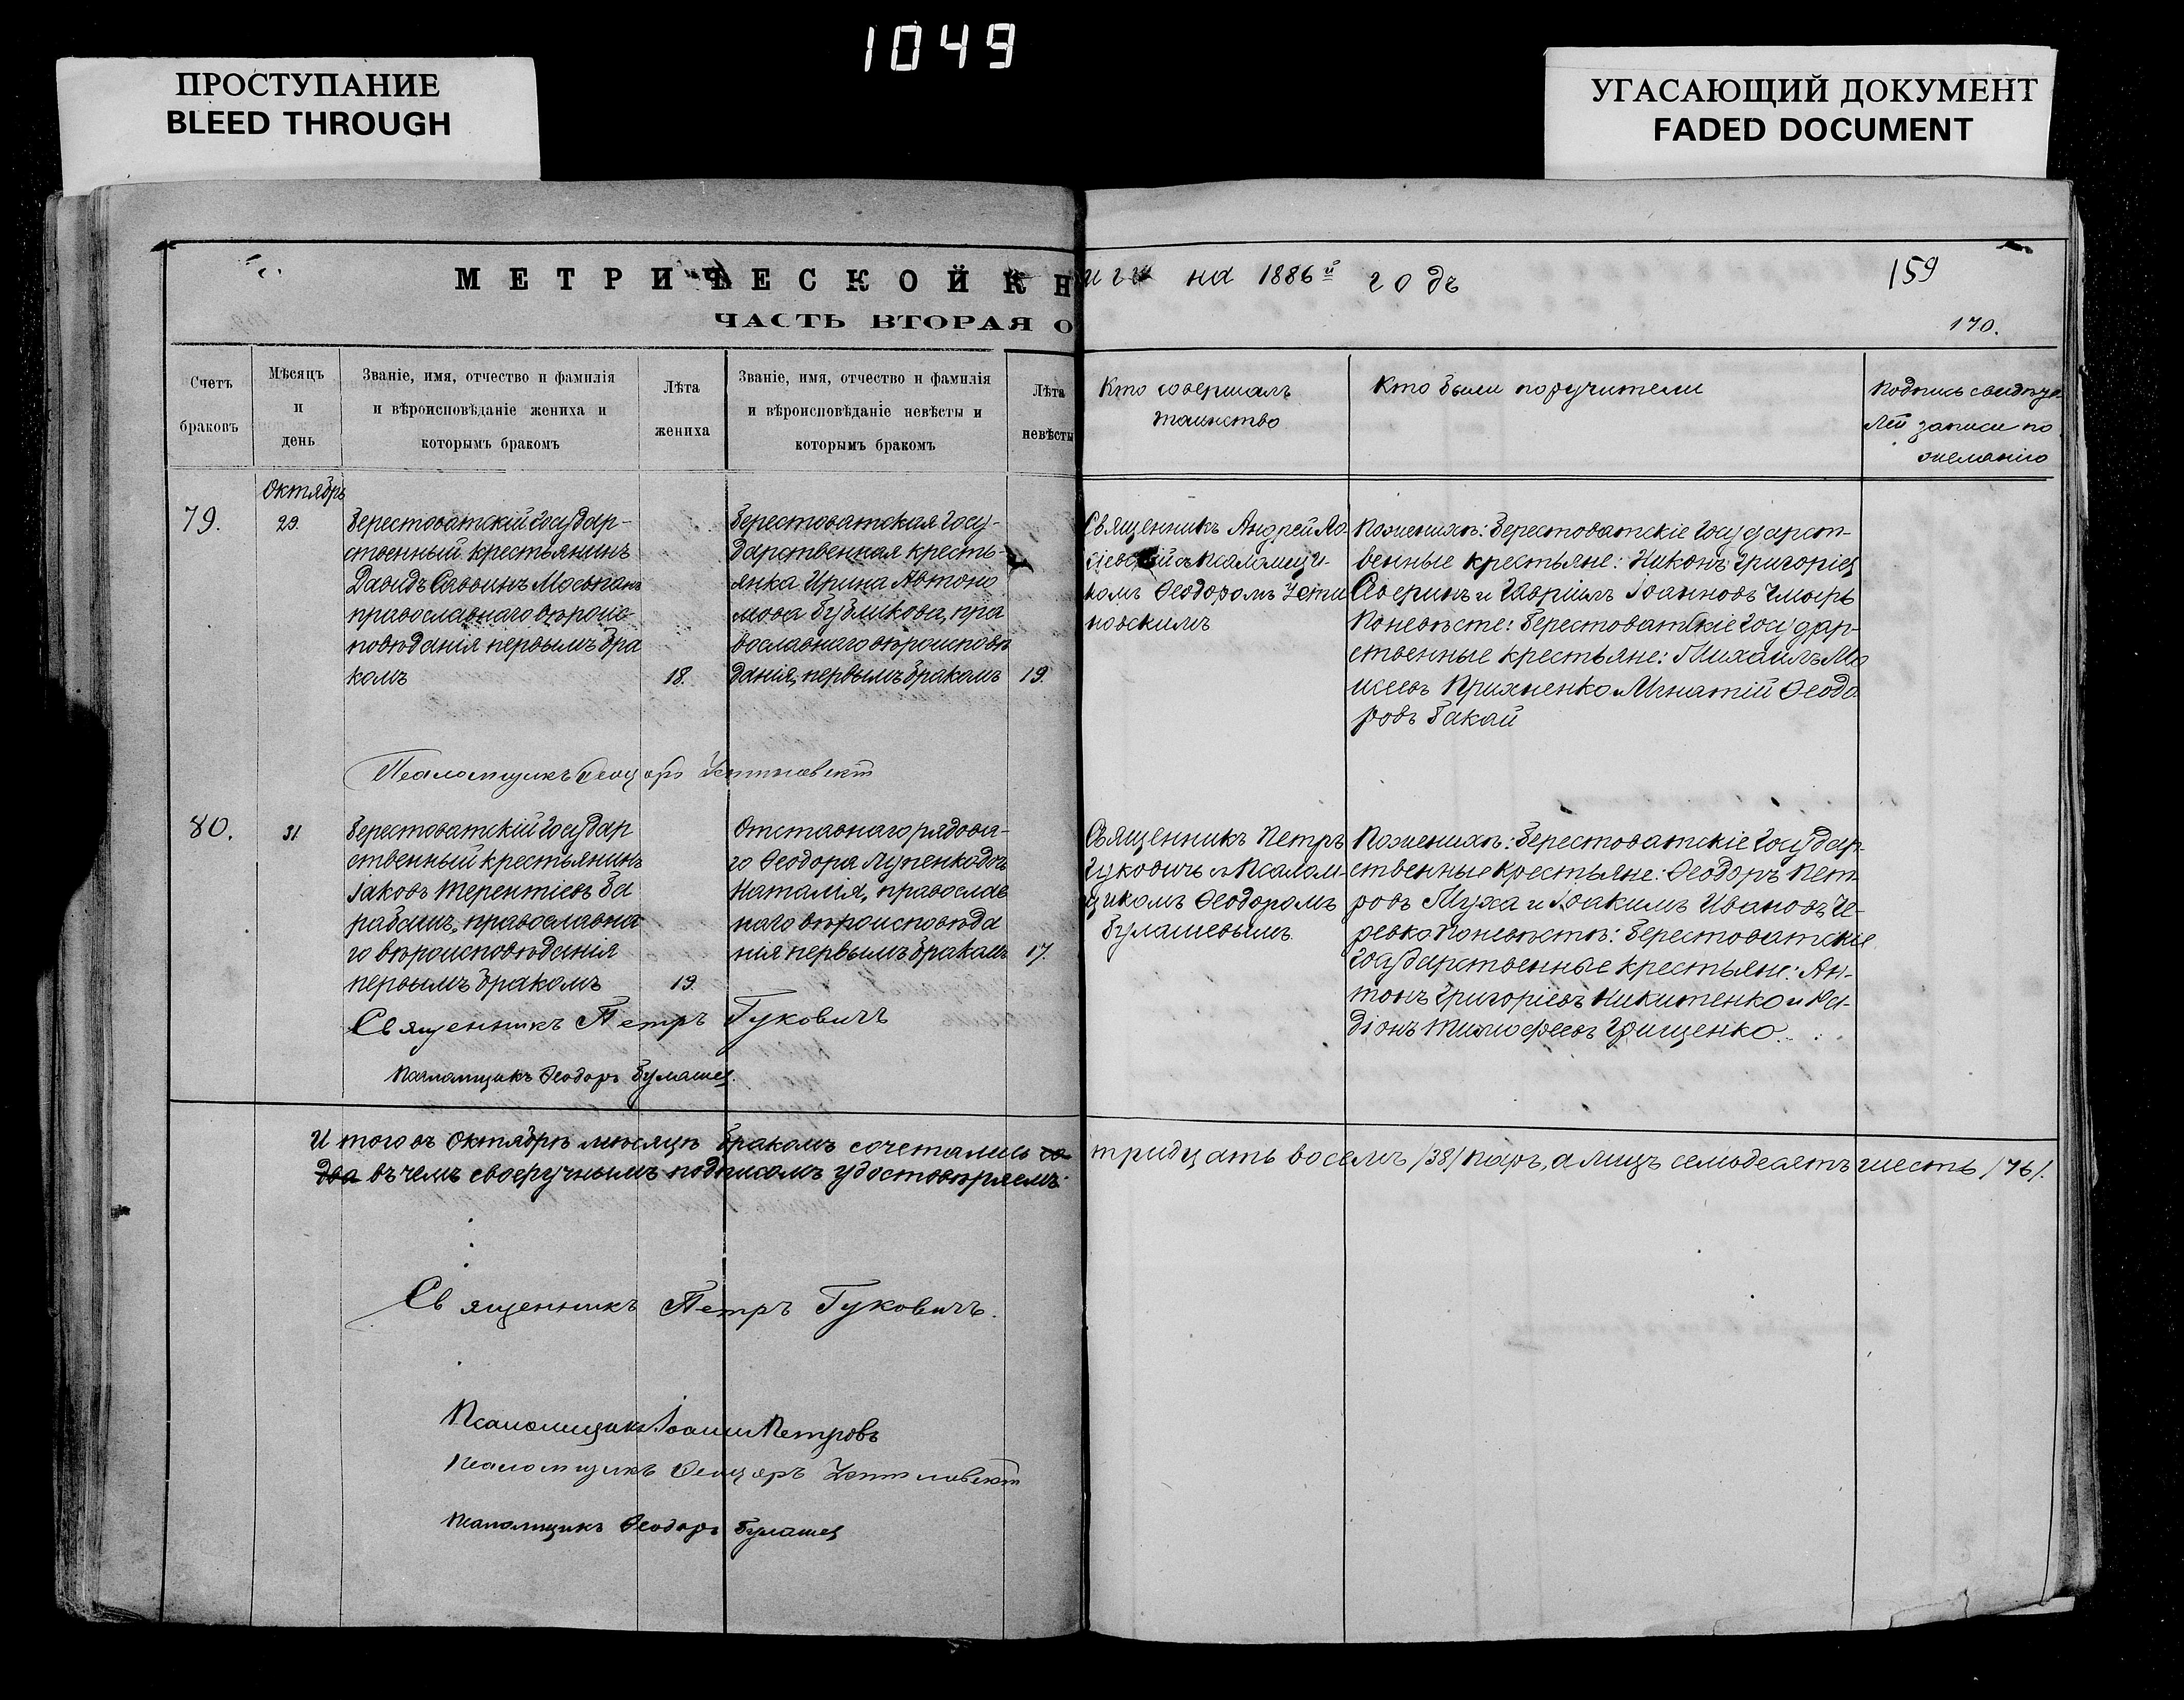 1049
ПРОСТУПАНИЕ
BLEED THROUGH
УГАСАЮЩИЙ ДОКУМЕНТ
FADED DOCUMENT
МЕТРИЧЕСКОЙ КНиги на 1886й годъ
159
ЧАСТЬ ВТОРАЯ О
170.
Счетъ
браковъ
Мѣсяцъ
и
день
Званіе, имя, отчество и фамилія
и вѣроисповѣданіе жениха и
которымъ бракомъ
Лѣта
жениха
Званіе, имя, отчество и фамилія
и вѣроисповѣданіе невѣсты и
которымъ бракомъ
Лѣта
невѣсты
Кто совершалъ
таинство
Кто были поручители
Подпись свидѣте
лей записи по
желанію
Октябрь
79.
29.
Берестоватскій Государ-
ственный крестьянинъ
Давидъ Саввинъ Мосьпанъ
православнаго вѣроис
повѣданія первымъ бра
комъ
18.
Берестоватская Госу-
дарственная кресть-
янка Ирина Автоно
мова Бубликова, пра
вославнаго вѣроисповѣ
данія, первымъ бракомъ
19.
Священникъ Андрей
съ псаломщи-
комъ Ѳеодоромъ
По женихѣ: Берестоватскіе Государст-
венные крестьяне: Никонъ Григоріев
Аверинъ и Гавріилъ Іоанновъ
По невѣсте: Берестоватскіе Государ-
ственные крестьяне: Михаилъ Мо
исеевъ Прихненко и Игнатій Ѳеодо
ровъ Бакай
Псаломщикъ Ѳеодоръ
80.
31.
Берестоватскій Государ
ственный крестьянинъ
Іаковъ Терентіевъ Ба
рабашъ, православна
го вѣроисповѣданія
первымъ бракомъ
19.
Отставнаго рядова-
го Ѳеодора Луценко дочь
Наталія, православ
наго вѣроисповѣда
нія первымъ бракомъ
17.
Священникъ Петръ
Гуковичъ съ Псалом-
щикомъ Ѳеодоромъ
Булашевымъ
По женихѣ: Берестоватскіе Государ-
ственные крестьяне: Ѳеодоръ Пет-
ровъ Муха и Іоакимъ Ивановъ Че-
ревко По невѣстѣ: Берестоватскіе
Государственные крестьяне: Ан-
тонъ Григоріевъ Никитенко и Ра-
діонъ Тимофеевъ Грищенко.
Священникъ Петръ Гуковичъ
Псаломщикъ Ѳеодоръ Булашев.
Итого въ Октябрѣ мѣсяцѣ бракомъ сочетались тридцать восемь /38/ паръ, а лицъ семьдесятъ шесть /76/.
два въ чемъ своеручнымъ подписомъ удостовѣряемъ:
Священникъ Петръ Гуковичъ.
Псаломщикъ Іоаннъ Петровъ
Псаломщикъ Ѳеодоръ
Псаломщикъ Ѳеодоръ Булашев